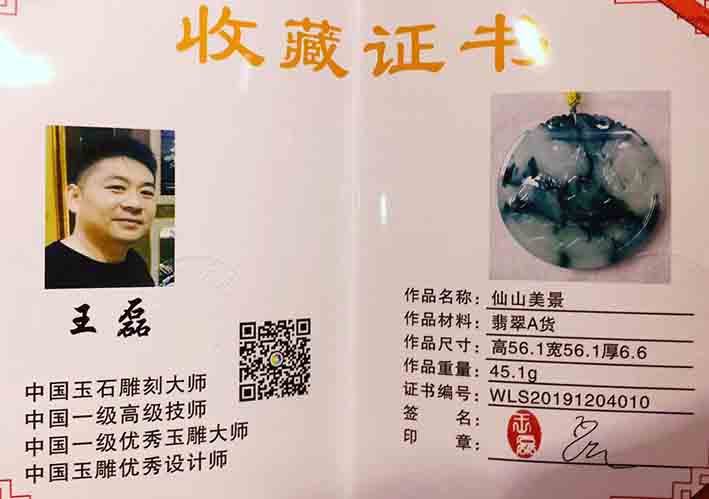 收藏证书
王磊
中国玉石雕刻大师
中国一级高级技师
中国一级优秀玉雕大师
中国玉雕优秀设计师
作品名称：仙山美景
作品材料：翡翠A货
作品尺寸：高56.1宽56.1厚6.6
作品重量：45.1g
证书编号：WLS20191204010
签 名：
印 章：